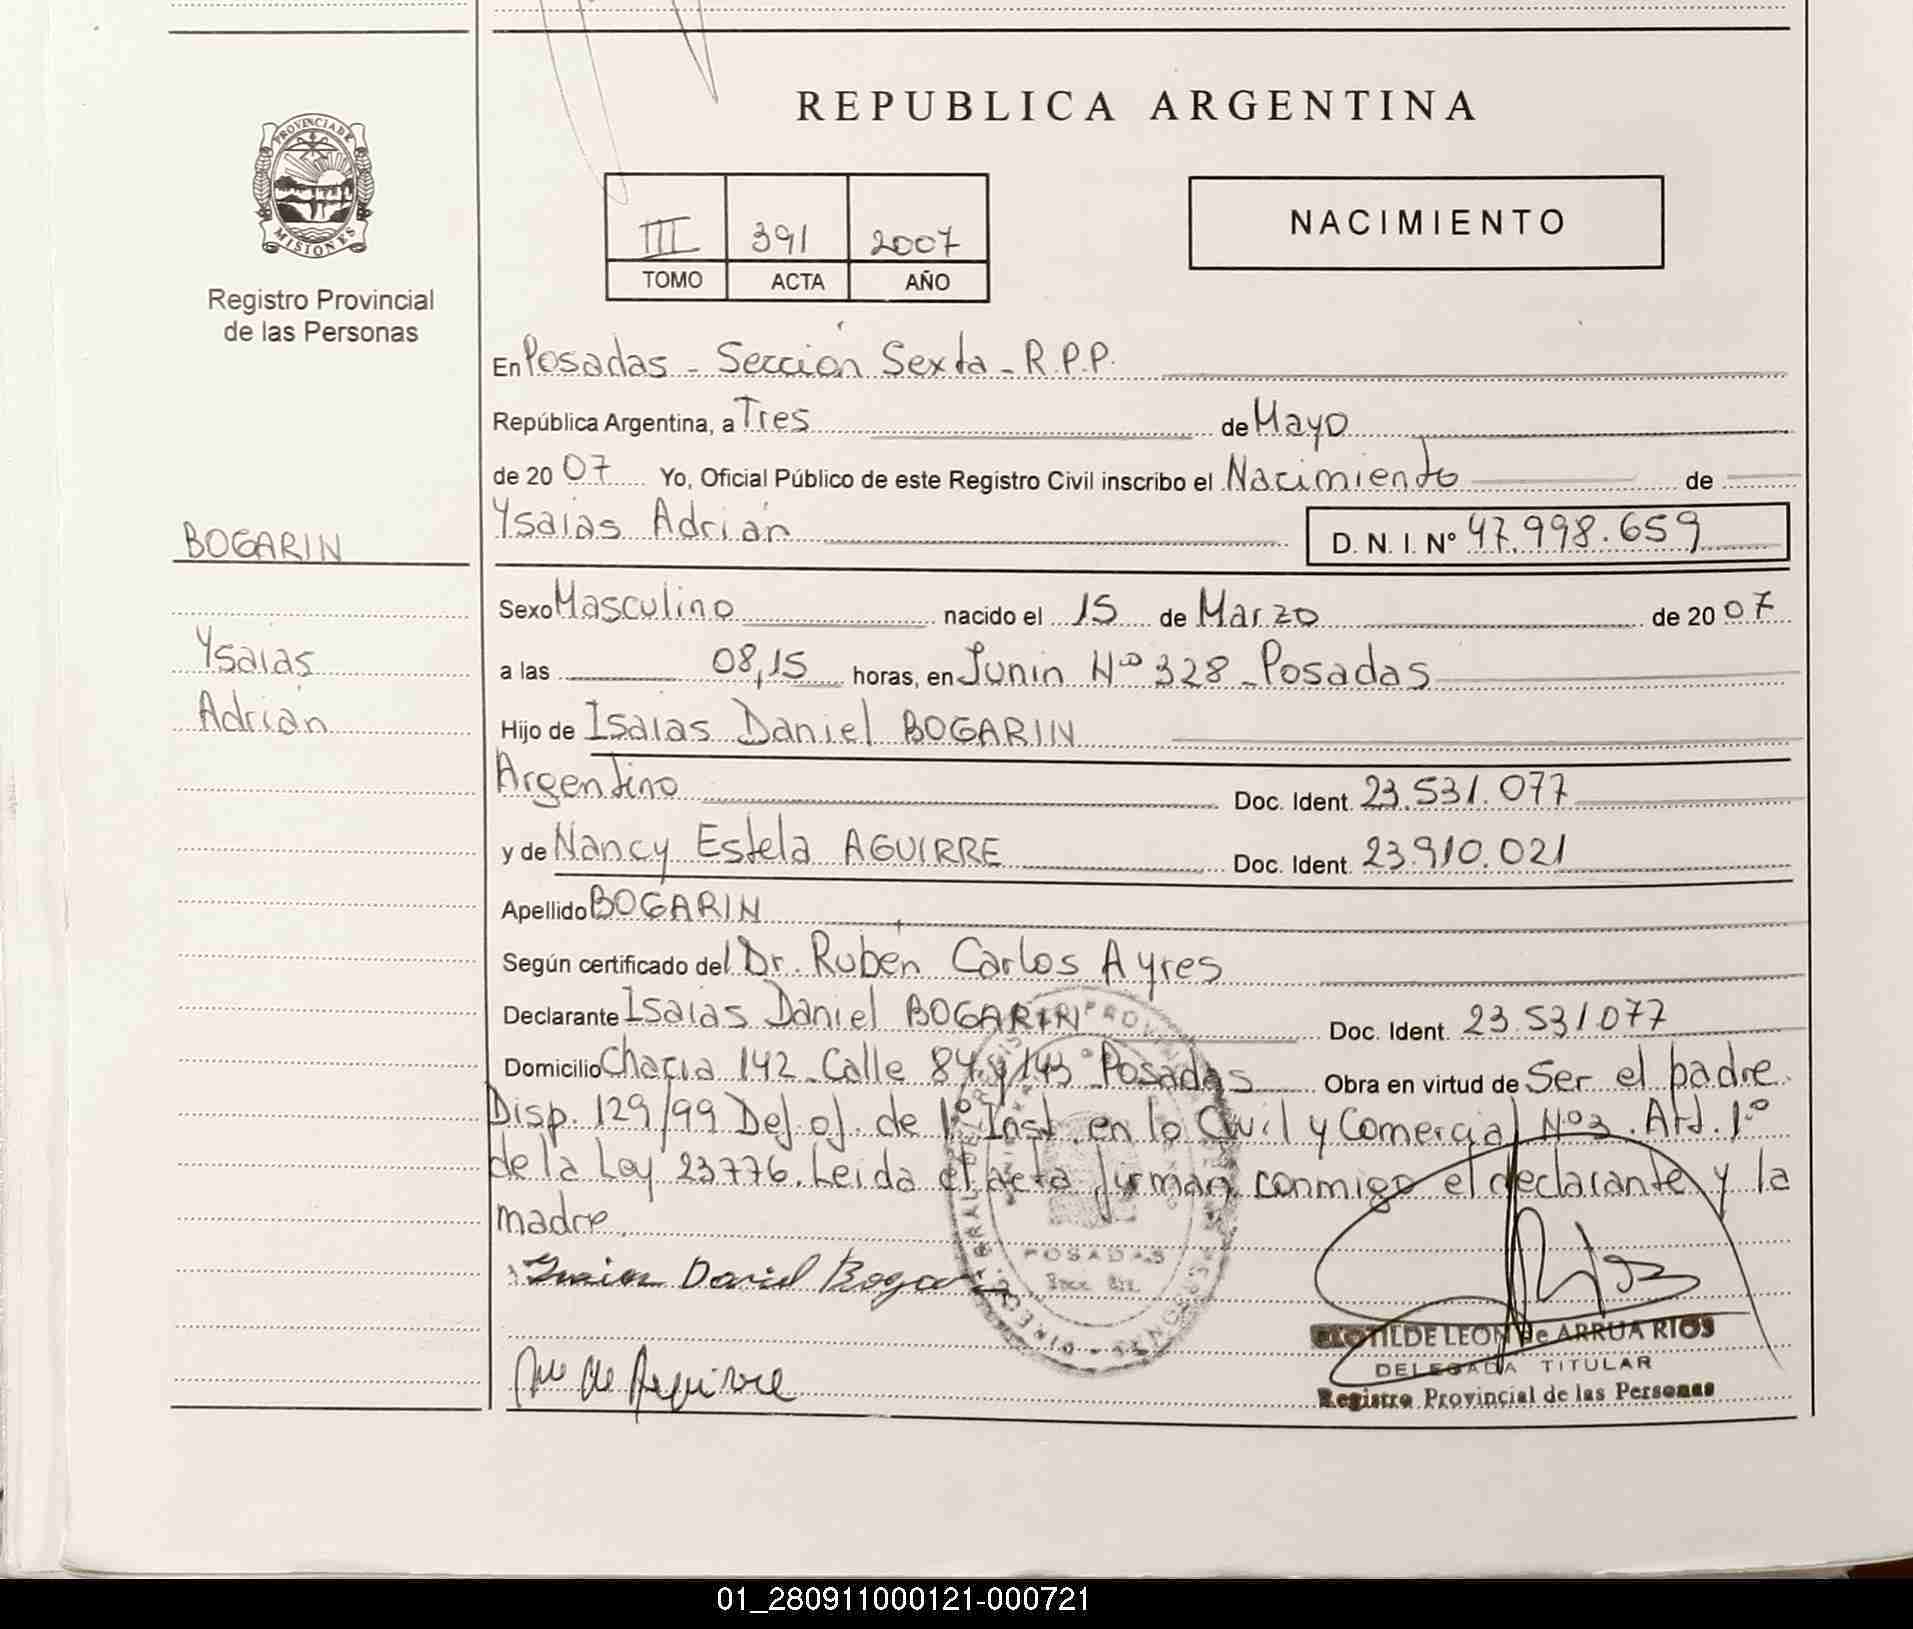 REPUBLICA ARGENTINA
PROVINCIA DE
MISIONES
Registro Provincial
de las Personas
III 391 2007
TOMO ACTA AÑO
NACIMIENTO
En Posadas - Sección Sexta - R.P.P.
República Argentina, a Tres de Mayo
de 2007 Yo, Oficial Público de este Registro Civil inscribo el Nacimiento de
Ysaias Adrián D. N. I. Nº 47.998.659
BOGARIN
Ysaias
Adrián
Sexo Masculino nacido el 15 de Marzo de 2007
a las 08,15 horas, en Junin Nº 328 - Posadas
Hijo de Isaias Daniel BOGARIN
Argentino Doc. Ident. 23.531.077
y de Nancy Estela AGUIRRE Doc. Ident. 23.910.021
Apellido BOGARIN
Según certificado del Dr. Rubén Carlos Ayres
Declarante Isaias Daniel BOGARIN Doc. Ident. 23.531.077
Domicilio Chacra 142 - Calle 84 y 145 - Posadas Obra en virtud de Ser el padre.
Disp. 129/99 Def. of. de 1º Inst. en lo Civil y Comercial Nº 3. Art. 1º
de la Ley 23776. Leida el acta firman conmigo el declarante y la
madre.
Daniel Bogarin
de Aguirre
POSADAS
CLOTILDE LEON de ARRUA RIOS
DELEGADA TITULAR
Registro Provincial de las Personas
01_280911000121-000721